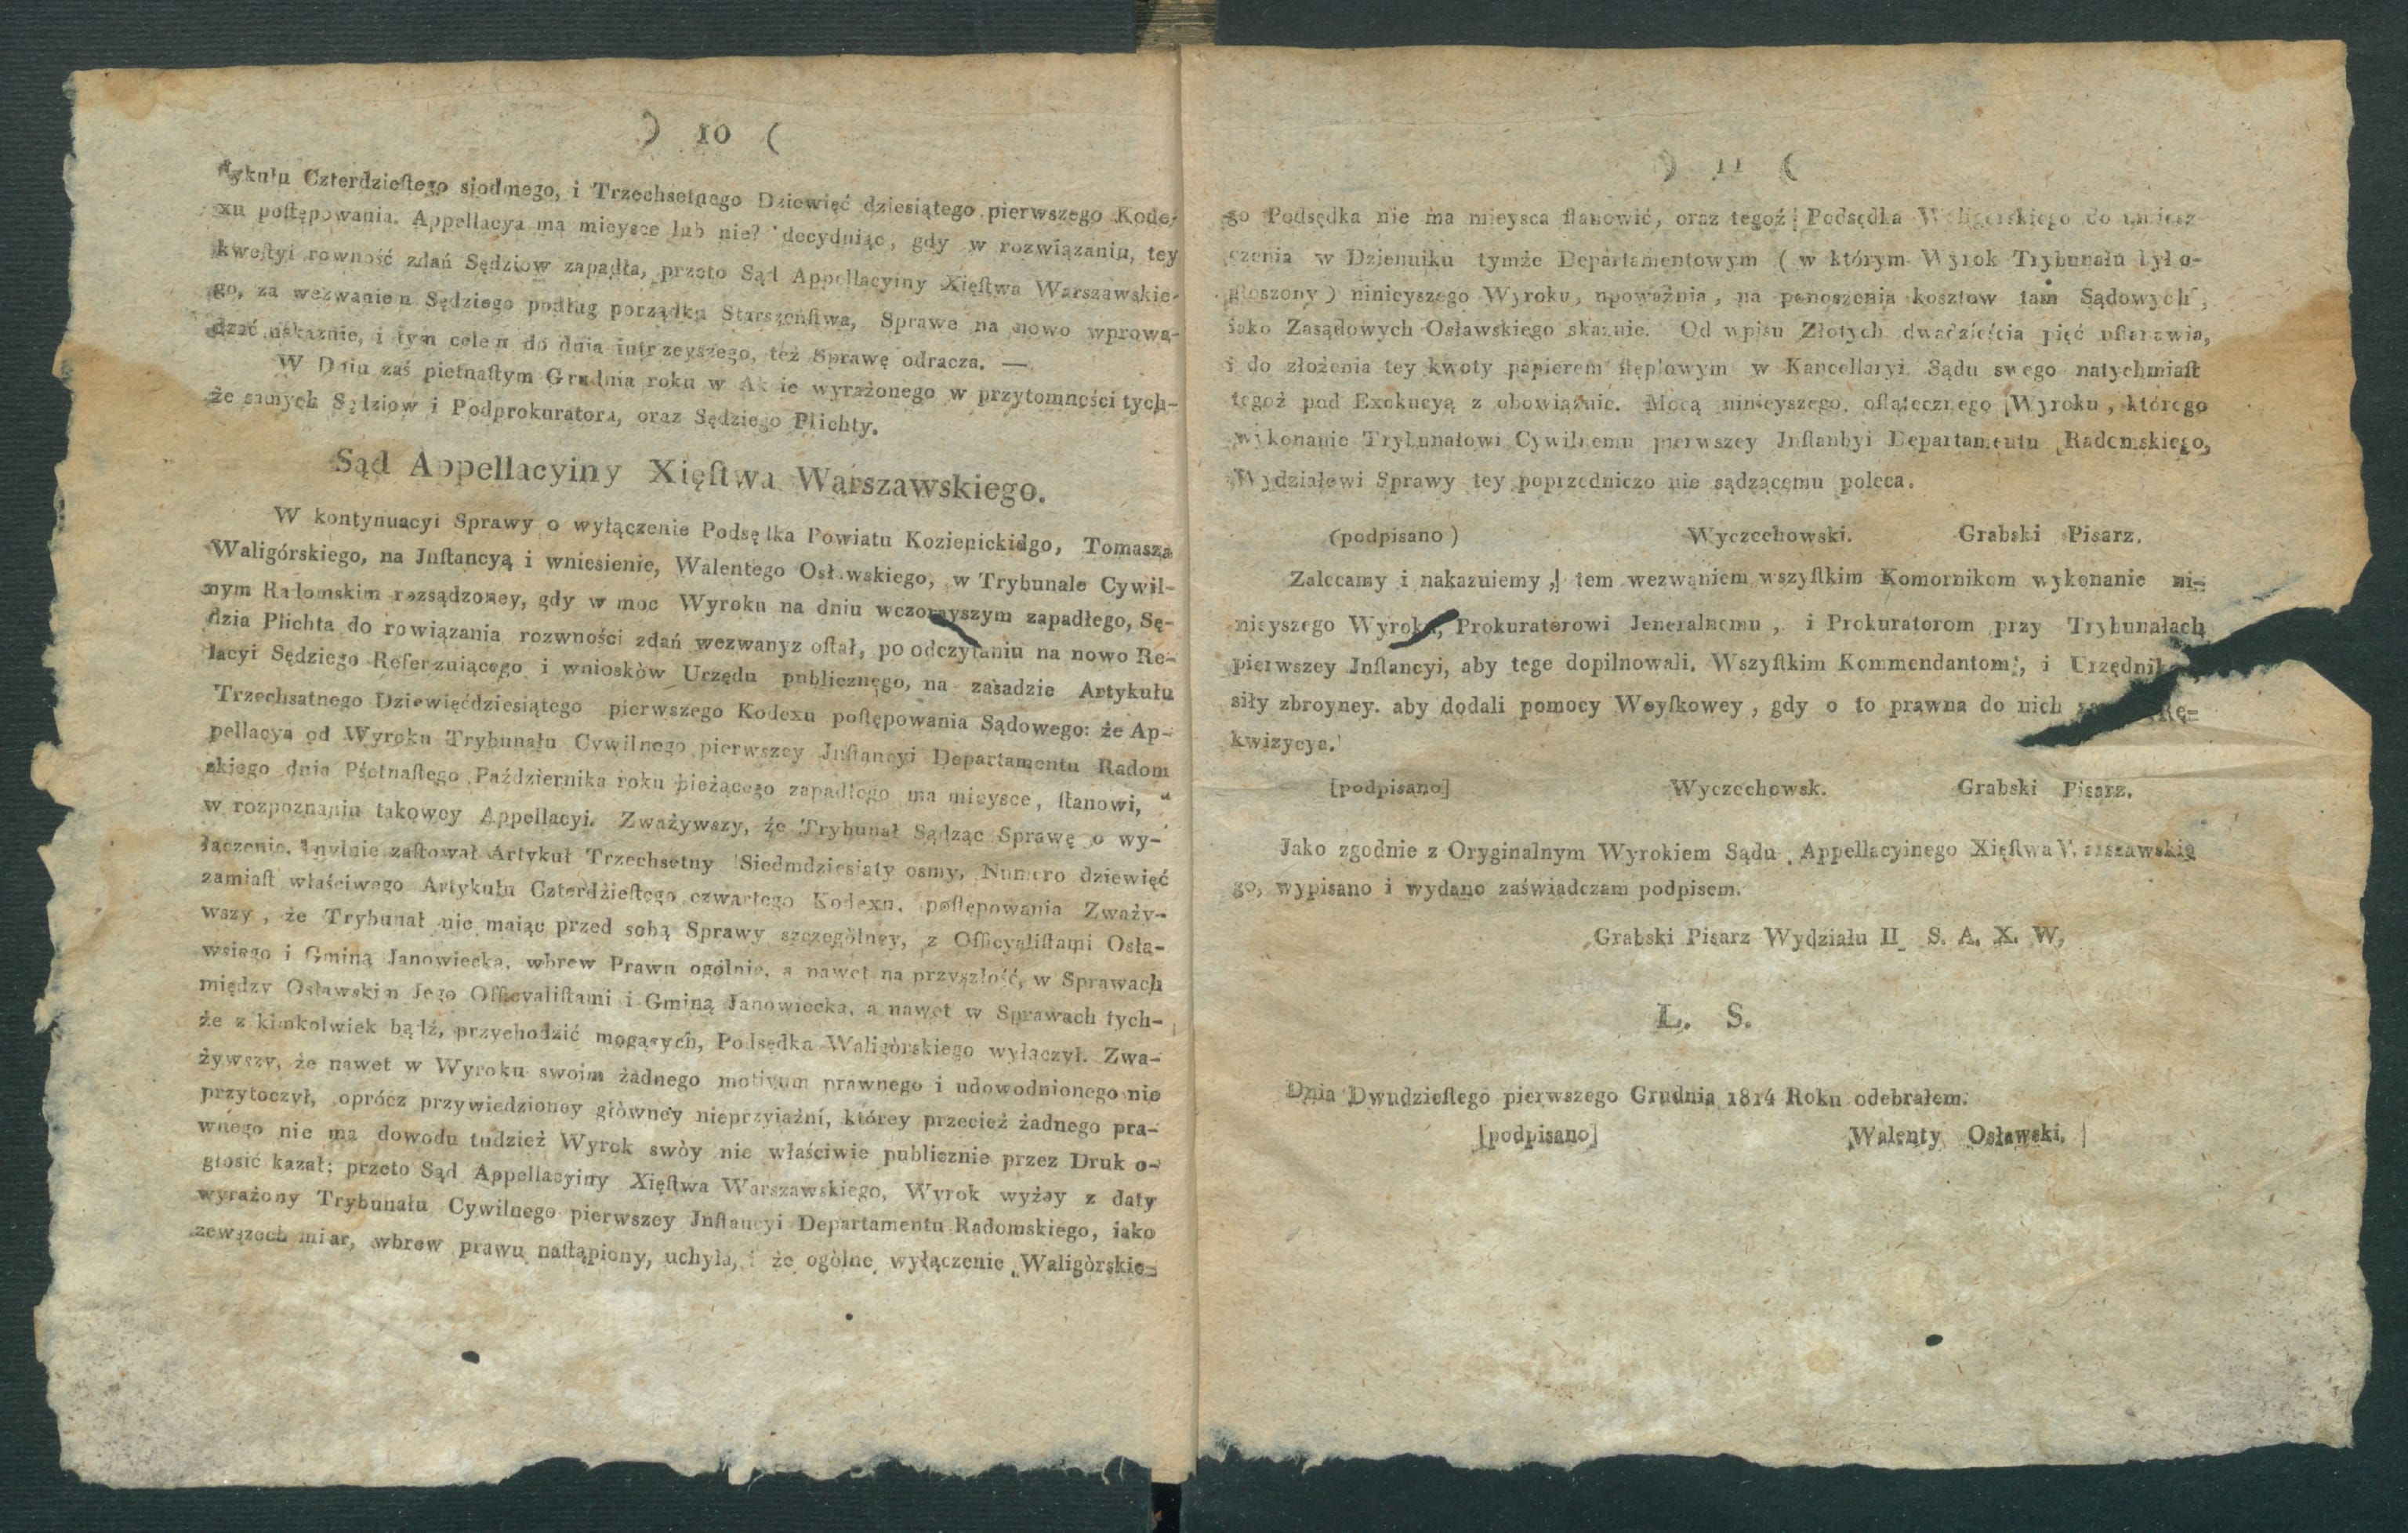 ) 10 (
tykułu Czterdzieſtego siodmego, i Trzechsetnego Dziewięć dziesiątego pierwszego Kode-
xu poſtępowania. Appellacya ma mieysce lub nie? decyduiąc, gdy w rozwiązaniu, tey
kweſtyi rowność zdań Sędziow zapadła, przeto Sąd Appellacyiny Xięſtwa Warszawskie-
go, za wezwaniem Sędziego podług porządku Starszeńſtwa, Sprawe na nowo wprowa-
dzać nakaznie, i tym celem do dnia iutrzeyszego, też Sprawę odracza. —
W Dniu zaś pietnaſtym Grudnia roku w Akcie wyrażonego w przytomności tych-
że samych Sędziow i Podprokuratora, oraz Sędziego Plichty.
Sąd Appellacyiny Xięſtwa Warszawskiego.
W kontynuacyi Sprawy o wyłączenie Podsędka Powiatu Kozienickidgo, Tomasza
Waligórskiego, na Jnſtancyą i wniesienie, Walentego Osławskiego, w Trybunale Cywil-
nym Radomskim rozsądzoney, gdy w moc Wyroku na dniu wczorayszym zapadłego, Sę-
dzia Plichta do rowiązania rozwności zdań wezwanyz oſtał, po odczytaniu na nowo Re-
lacyi Sędziego Referzuiącego i wnioskòw Urzędu publicznęgo, na zasadzie Artykułu
Trzechsatnego Dziewięćdziesiątego pierwszego Kodexu poſtępowania Sądowego: że Ap-
pellacya od Wyroku Trybunału Cywilnego pierwszey Jnſtancyi Departamentu Radom
skiego dnia Pśetnaſtego Października roku bieżącego zapadłego ma mieysce, ſtanowi,
w rozpoznaniu takowey Appellacyi. Zważywszy, że Trybunał Sądząc Sprawę o wy-
łączenie, mylnie zaſtował Artykuł Trzechsetny Siedmdziesiaty osmy, Numero dziewięć
zamiaſt właściwego Artykułu Czterdzieſtego czwartego Kodexu, poſtępowania Zważy-
wszy, że Trybunał nie maiąc przed sobą Sprawy szczegòlney, z Officyaliſtami Osła-
wsiego i Gminą Janowiecka, wbrew Prawu ogólnie, a nawet na przyszłość, w Sprawach
między Osławskim Jego Officyaliſtami i Gminą Janowiecka, a nawet w Sprawach tych-
że z kimkolwiek bądź, przychodzić mogących, Podsędka Waligòrskiego wyłaczył. Zwa-
żywszy, że nawet w Wyroku swoim żadnego motivum prawnego i udowodnionego nie
przytoczył, oprócz przywiedzioney głòwney nieprzyiaźni, którey przecież żadnego pra-
wnego nie ma dowodu tudzież Wyrok swòy nie właściwie publicznie przez Druk o-
głosić kazał; przeto Sąd Appellacyiny Xięſtwa Warszawskiego, Wyrok wyżey z daty
wyrażony Trybunału Cywilnego pierwszey Jnſtancyi Departamentu Radomskiego, iako
zewszech miar, wbrew prawu naſtąpiony, uchyla, i że ogòlne wyłączenie Waligòrskie-
) 11 (
go Podsędka nie ma mieysca ſtanowić, oraz tegoż Podsędka Waligorskiego do umiesz
czenia w Dzienuiku tymże Departamentowym ( w którym Wyrok Trybunału był o-
głoszony ) ninieyszego Wyroku, upoważnia, na ponoszenia kosztow tam Sądowych,
iako Zasądowych Osławskiego skaznie. Od wpisu Złotych dwadzieścia pięć uſtanawia,
i do złożenia tey kwoty papierem ſtęplowym w Kancellaryi Sądu swego natychmiaſt
tegoż pod Exekucyą z obowiąznie. Mocą ninieyszego oſtatecznego Wyroku, którego
wykonanie Trybunałowi Cywilnemu pierwszey Jnſtanbyi Departamentu Radomskiego,
Wydziałowi Sprawy tey poprzedniczo nie sądzącemu poleca.
(podpisano) Wyczechowski. Grabski Pisarz.
Zalecamy i nakazuiemy, tem wezwaniem wszyſtkim Komornikom wykonanie ni-
nieyszego Wyroku, Prokuratorowi Jeneralnemu, i Prokuratorom przy Trybunałach
pierwszey Jnſtancyi, aby tego dopilnowali. Wszyſtkim Kommendantom, i Urzędnik
siły zbroyney. aby dodali pomocy Woyſkowey, gdy o to prawna do nich Rę-
kwizycya.
[podpisano] Wyczechowsk. Grabski Pisarz.
Jako zgodnie z Oryginalnym Wyrokiem Sądu Appellacyinego Xięſtwa Warszawskie
go, wypisano i wydano zaświadczam podpisem.
Grabski Pisarz Wydziału II S. A. X. W.
L. S.
Dnia Dwudzieſtego pierwszego Grudnia 1814 Roku odebrałem.
[podpisano] Walenty Osławski.